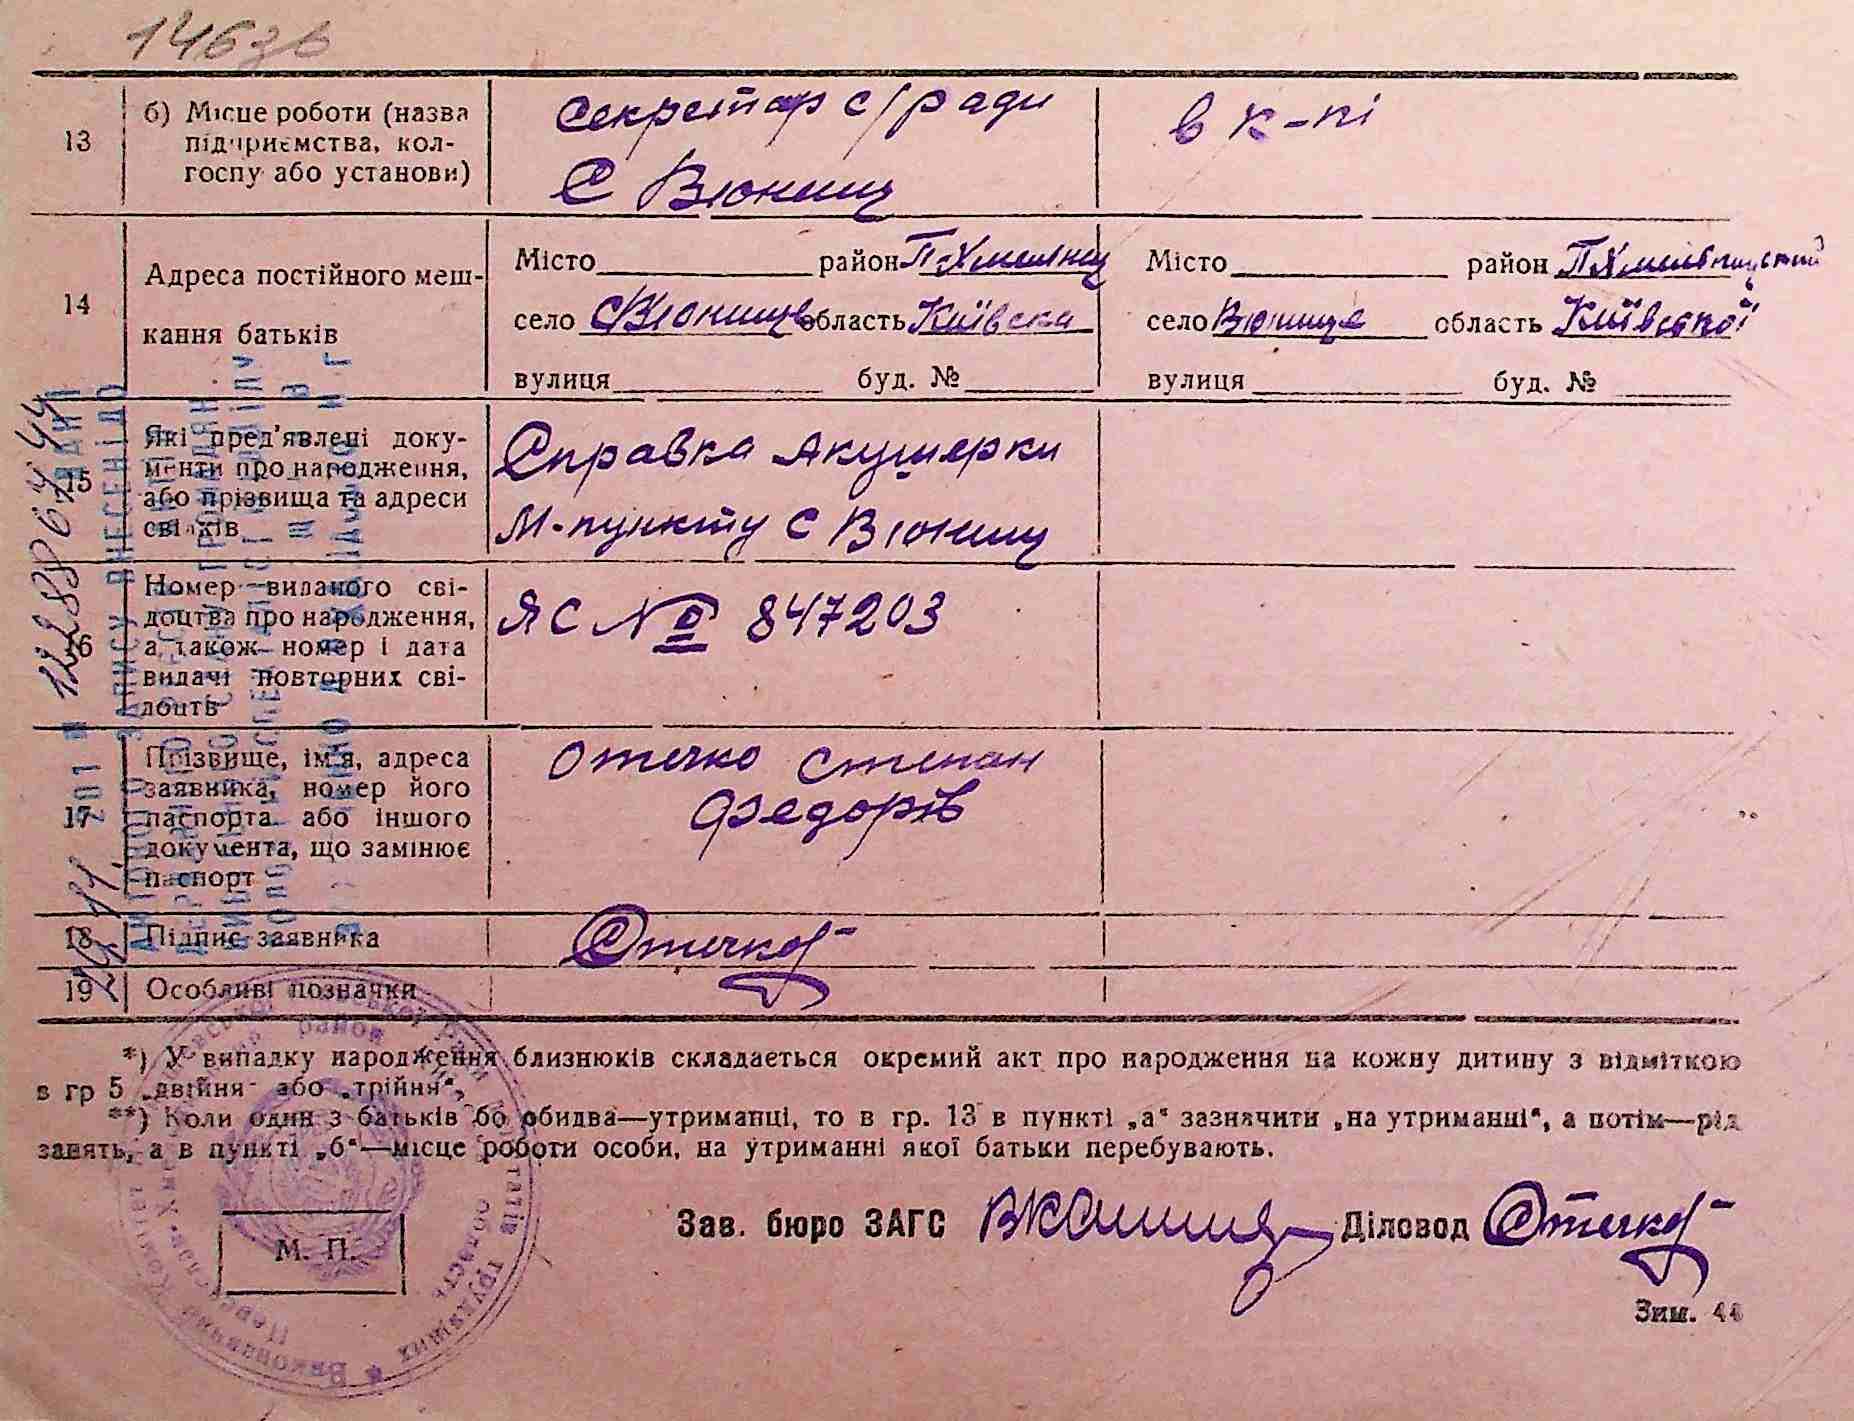 146зв
13
б) Місце роботи (назва
підприємства, кол-
госпу або установи)
Секретар с/ради
с Вюнищ
в к-пі
14
Адреса постійного меш-
кання батьків
Місто район П-Хмельниц
село с Вюнище область Київска
вулиця буд. №
Місто район П Хмельницький
село Вюнище область Київської
вулиця буд. №
15
Які пред'явлені доку-
менти про народження,
або прізвища та адреси
свідків
Справка акушерки
М-пункту с Вюнищ
16
Номер виданого сві-
доцтва про народження,
а також номер і дата
видачі повторних сві-
доцтв
ЯС № II 847203
17
Прізвище, ім'я, адреса
заявника, номер його
паспорта або іншого
документа, що замінює
паспорт
Отечко Степан
Федорів
18
Підпис заявника
Отечко
19
Особливі позначки
*) У випадку народження близнюків складається окремий акт про народження на кожну дитину з відміткою
в гр 5 „двійня" або „трійня",
**) Коли один з батьків бо обидва—утриманці, то в гр. 13 в пункті „а" зазначити „на утриманні", а потім—рід
занять, а в пункті „б"—місце роботи особи, на утриманні якої батьки перебувають.
М. П.
Зав. бюро ЗАГС
Діловод Отечко
Зим. 44